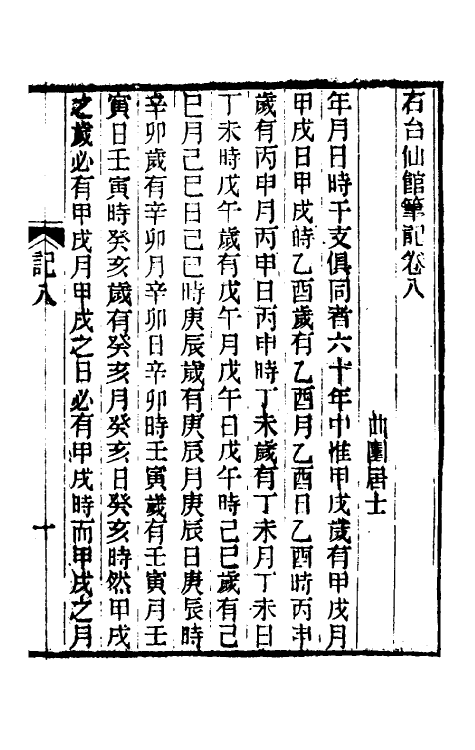 右台仙館筆記卷八
曲園居士
年月日時干支俱同者六十年中惟甲戌歲有甲戌月
甲戌日甲戌時乙酉歲有乙酉月乙酉日乙酉時丙申
歲有丙申月丙申日丙申時丁未歲有丁未月丁未日
丁未時戊午歲有戊午月戊午日戊午時己巳歲有己
巳月己巳日己巳時庚辰歲有庚辰月庚辰日庚辰時
辛卯歲有辛卯月辛卯日辛卯時壬寅歲有壬寅月壬
寅日壬寅時癸亥歲有癸亥月癸亥日癸亥時然甲戌
之歲必有甲戌月甲戌之日必有甲戌時而甲戌之月
記八
十